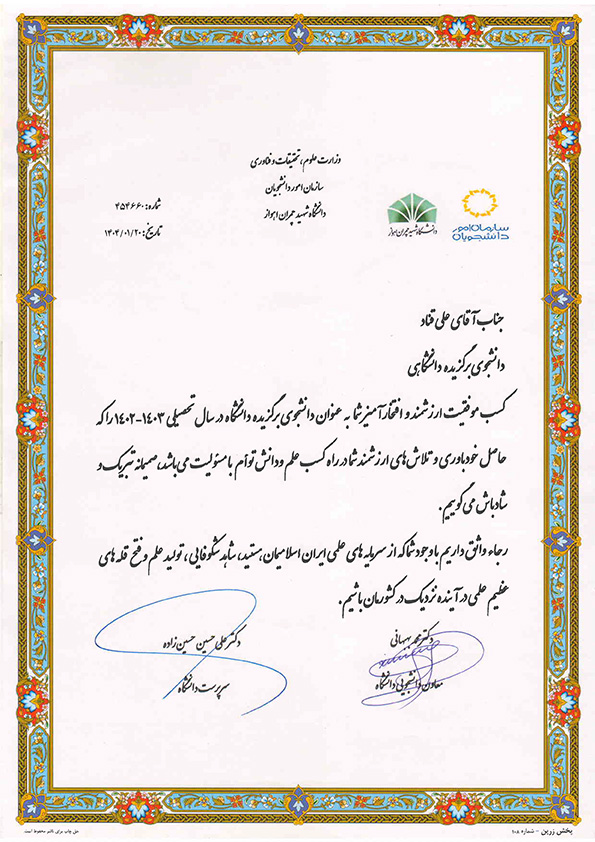 وزارت علوم، تحقیقات و فناوری
سازمان امور دانشجویان
دانشگاه شهید چمران اهواز
شماره: ۴۵۴۶۶۰
تاریخ: ۱۴۰۴/۰۱/۲۰
سازمان امور
دانشجویان
دانشگاه شهید چمران اهواز
جناب آقای علی قناد
دانشجوی برگزیده دانشگاهی
کسب موفقیت ارزشمند و افتخارآمیز شما به عنوان دانشجوی برگزیده دانشگاه در سال تحصیلی ۱۴۰۳-۱۴۰۲ را که
حاصل خودباوری و تلاش های ارزشمند شما در راه کسب علم و دانش توأم با مسئولیت می باشد، صمیمانه تبریک و
شادباش می گوییم.
رجاء واثق داریم با وجود شما که از سرمایه های علمی ایران اسلامیمان هستید، شاهد شکوفایی، تولید علم و فتح قله های
عظیم علمی در آینده نزدیک در کشورمان باشیم.
دکتر محمد بهبهانی
معاون دانشجویی دانشگاه
دکتر علی حسین حسین زاده
سرپرست دانشگاه
پخش زرین - شماره ۲۰۸
حق چاپ برای ناشر محفوظ است